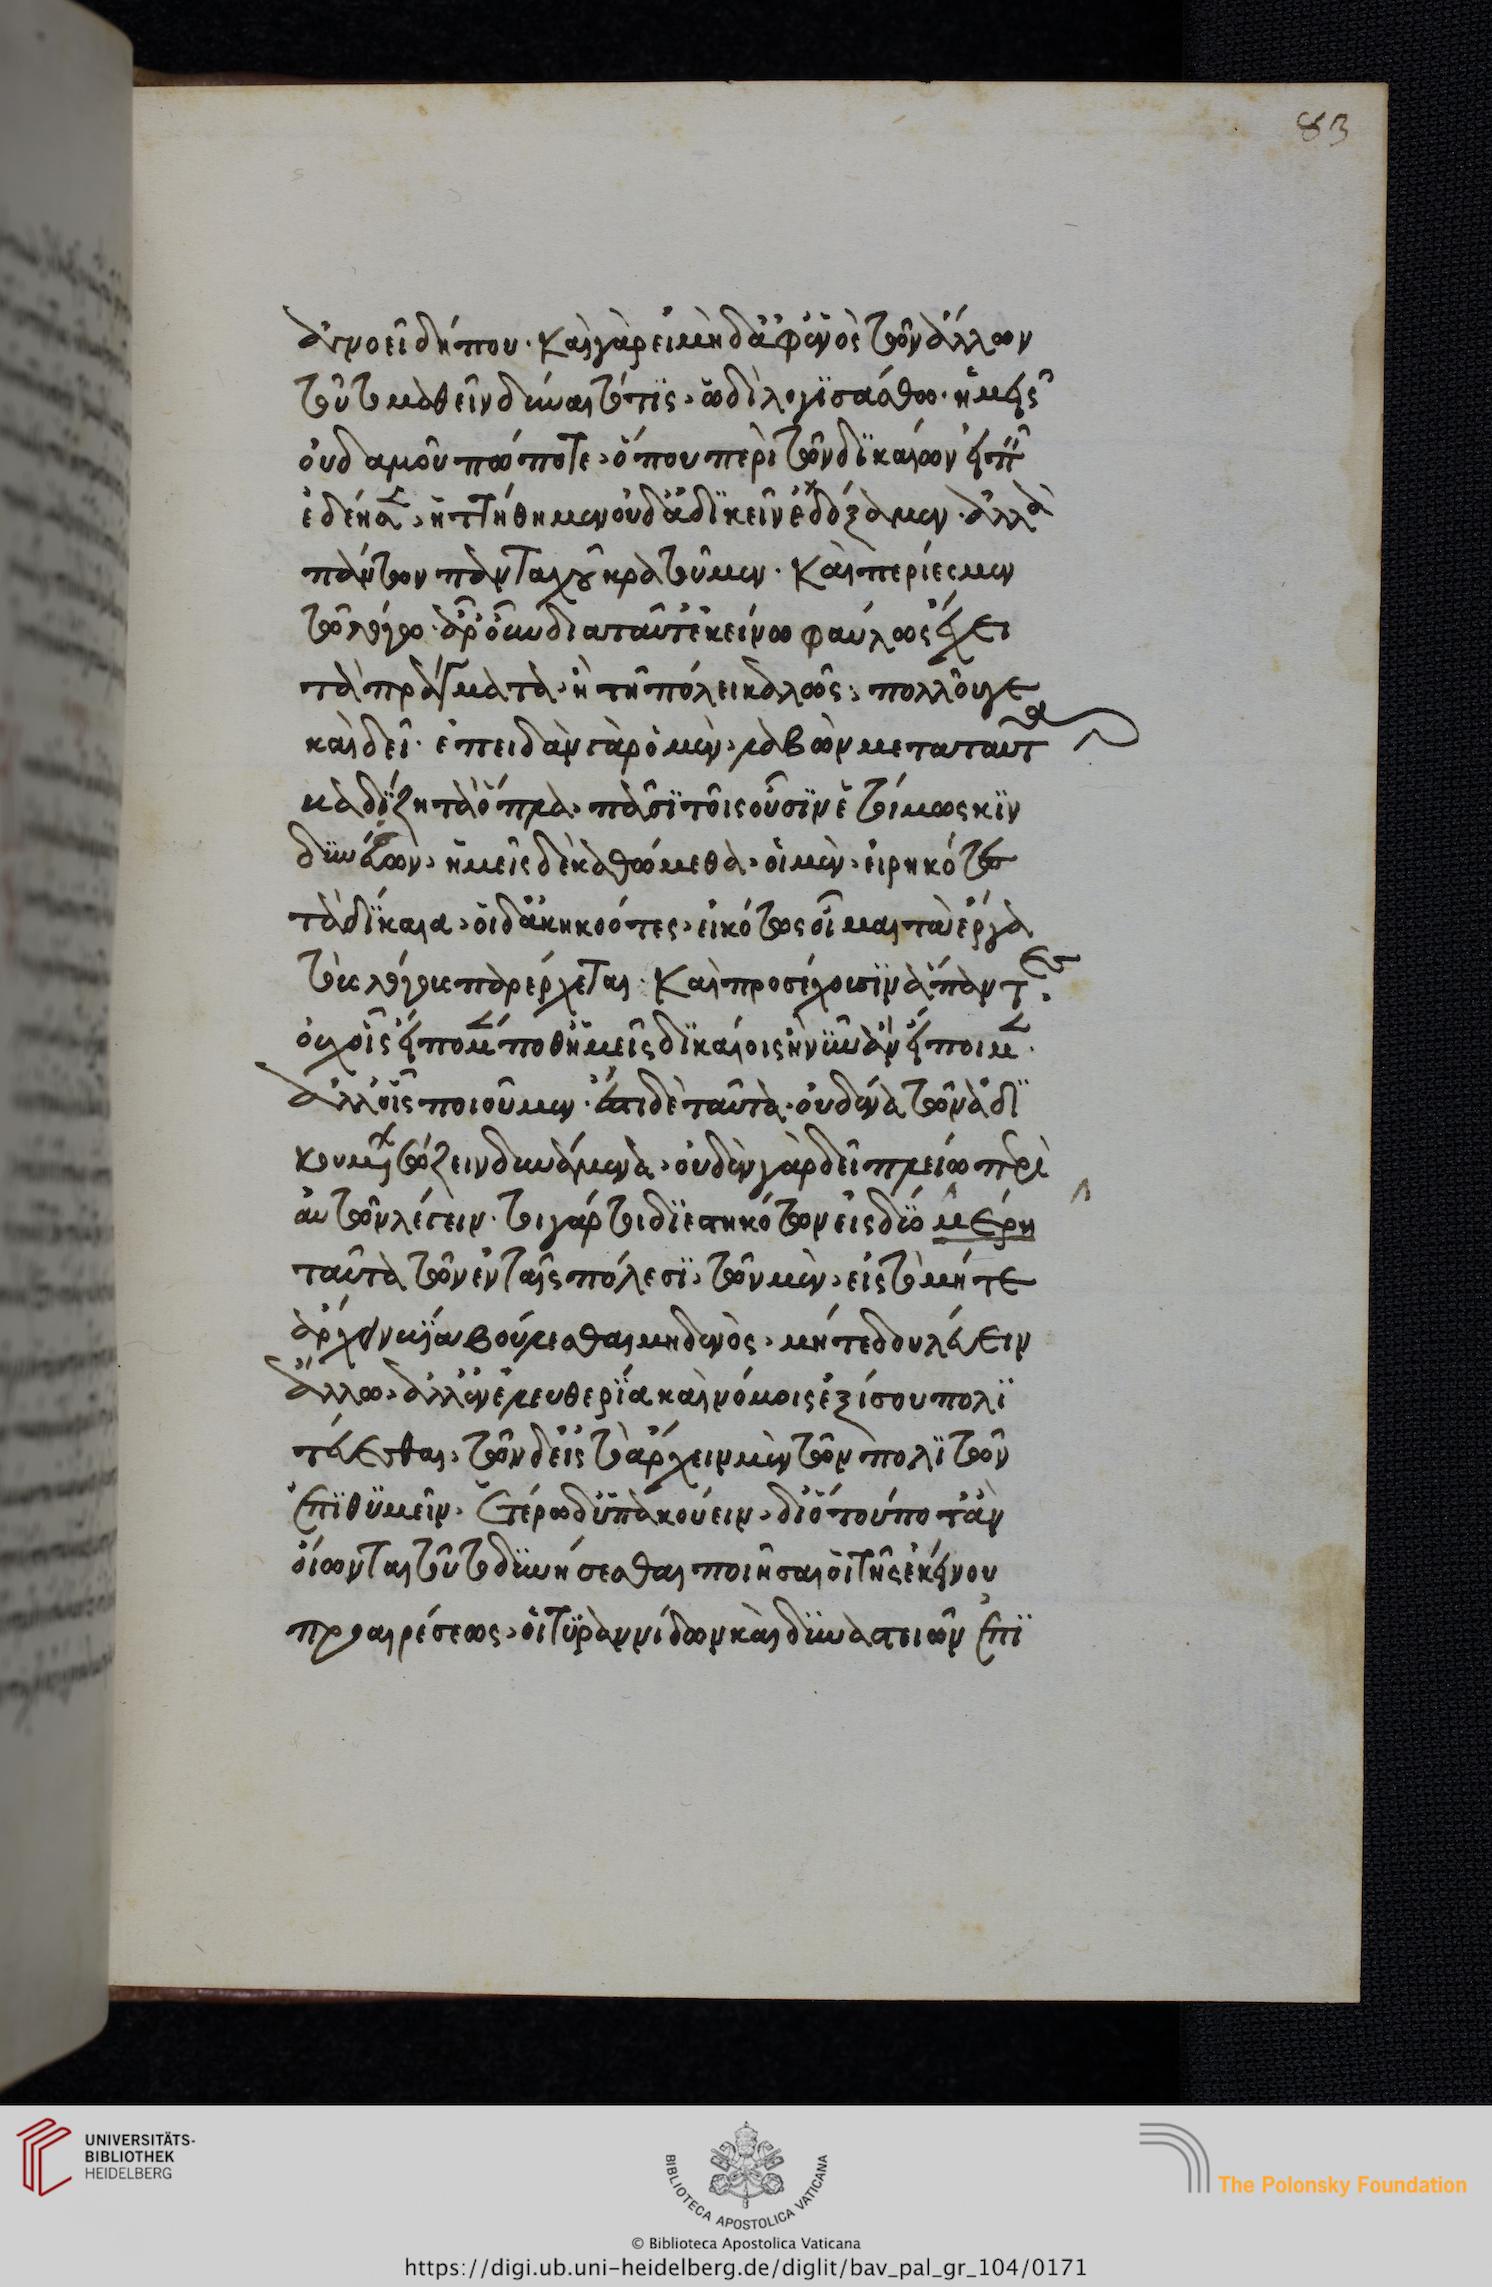 ἀγνοεῖ δήπου· καὶ γὰρ εἰ μὴ δ' ἀφ' ἑνὸς τῶν ἄλλων
τοῦτο μαθεῖν δύναιτό τις, ὡδὶ λογϊσάσθω· ἡμεῖς
οὐδαμοῦ πώποτε, ὅπου περὶ τῶν δϊκαίων εἰπεῖν
ἐδέησεν, ἡττήθημεν οὐδ' ἀδϊκεῖν ἐδόξαμεν· ἀλλὰ
πάντων πανταχοῦ κρατοῦμεν· καὶ περίεσμεν
τῷ λόγῳ· ἆρ' οὖν διὰ ταῦτ' ἐκείνω φαύλως ἔχει
τὰ πράγματα· ἢ τῇ πόλει καλῶς; πολλοῦ γε
καὶ δεῖ· ἐπειδὰν γὰρ ὁ μὲν, λαβὼν μετὰ ταῦτα
βαδΐζη τὰ ὅπλα, πᾶσϊ τοῖς οὖσϊν ἑτοίμως κϊν
δϋνεύσων, ἡμεῖς δὲ καθώμεθα, οἱ μὲν, εἰρηκότες
τὰ δΐκαια, οἱ δ' ἀκηκοότες, εἰκότως οἶμαι τὰ ἔργα
τοὺς λόγους παρέρχεται· καὶ προσέχουσϊν ἅπαντες·
οὐχ οἷς εἴπομέν ποθ' ἡμεῖς δϊκαίοις ἢ νῦν ἂν εἴποιμεν·
ἀλλ' οἷς ποιοῦμεν· ἔστι δὲ ταῦτα· οὐδένα τῶν ἀδϊ
κουμένων σώζειν δυνάμενα, οὐδὲν γὰρ δεῖ πλείω περὶ
αὐτῶν λέγειν· τοιγάρτοι διεστηκότων εἰς δύο μέρη
ταῦτα τῶν ἐν ταῖς πόλεσϊ, τῶν μὲν, εἰς τὸ μήτε
ἄρχειν βούλεσθαι μηδενὸς, μήτε δουλεύειν
ἄλλω, ἀλλ' ἐν ἐλευθερΐα καὶ νόμοις ἐξ ἴσου πολϊ
τεύεσθαι, τῶν δ' εἰς τὸ ἄρχειν μὲν τῶν πολϊτῶν
ἐπϊθϋμεῖν, ἑτέρω δ' ὑπακούειν, δι' ὅτου ποτ' ἂν
οἴωνται τοῦτο δϋνήσεσθαι ποιῆσαι οἱ τῆς ἐκείνου
προαιρέσεως, οἱ τϋραννίδων καὶ δϋναστειῶν ἐπϊ
83
UNIVERSITÄTS-
BIBLIOTHEK
HEIDELBERG
BIBLIOTECA APOSTOLICA VATICANA
The Polonsky Foundation
© Biblioteca Apostolica Vaticana
https://digi.ub.uni-heidelberg.de/diglit/bav_pal_gr_104/0171